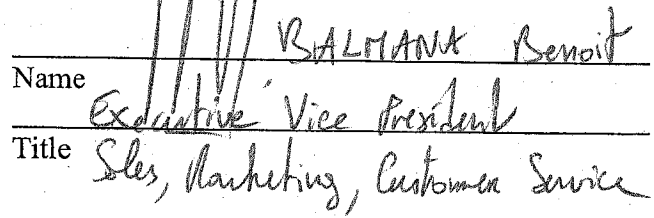 BALMANA Benoit
Name
Executive Vice President
Title
Sales, Marketing, Customer Service